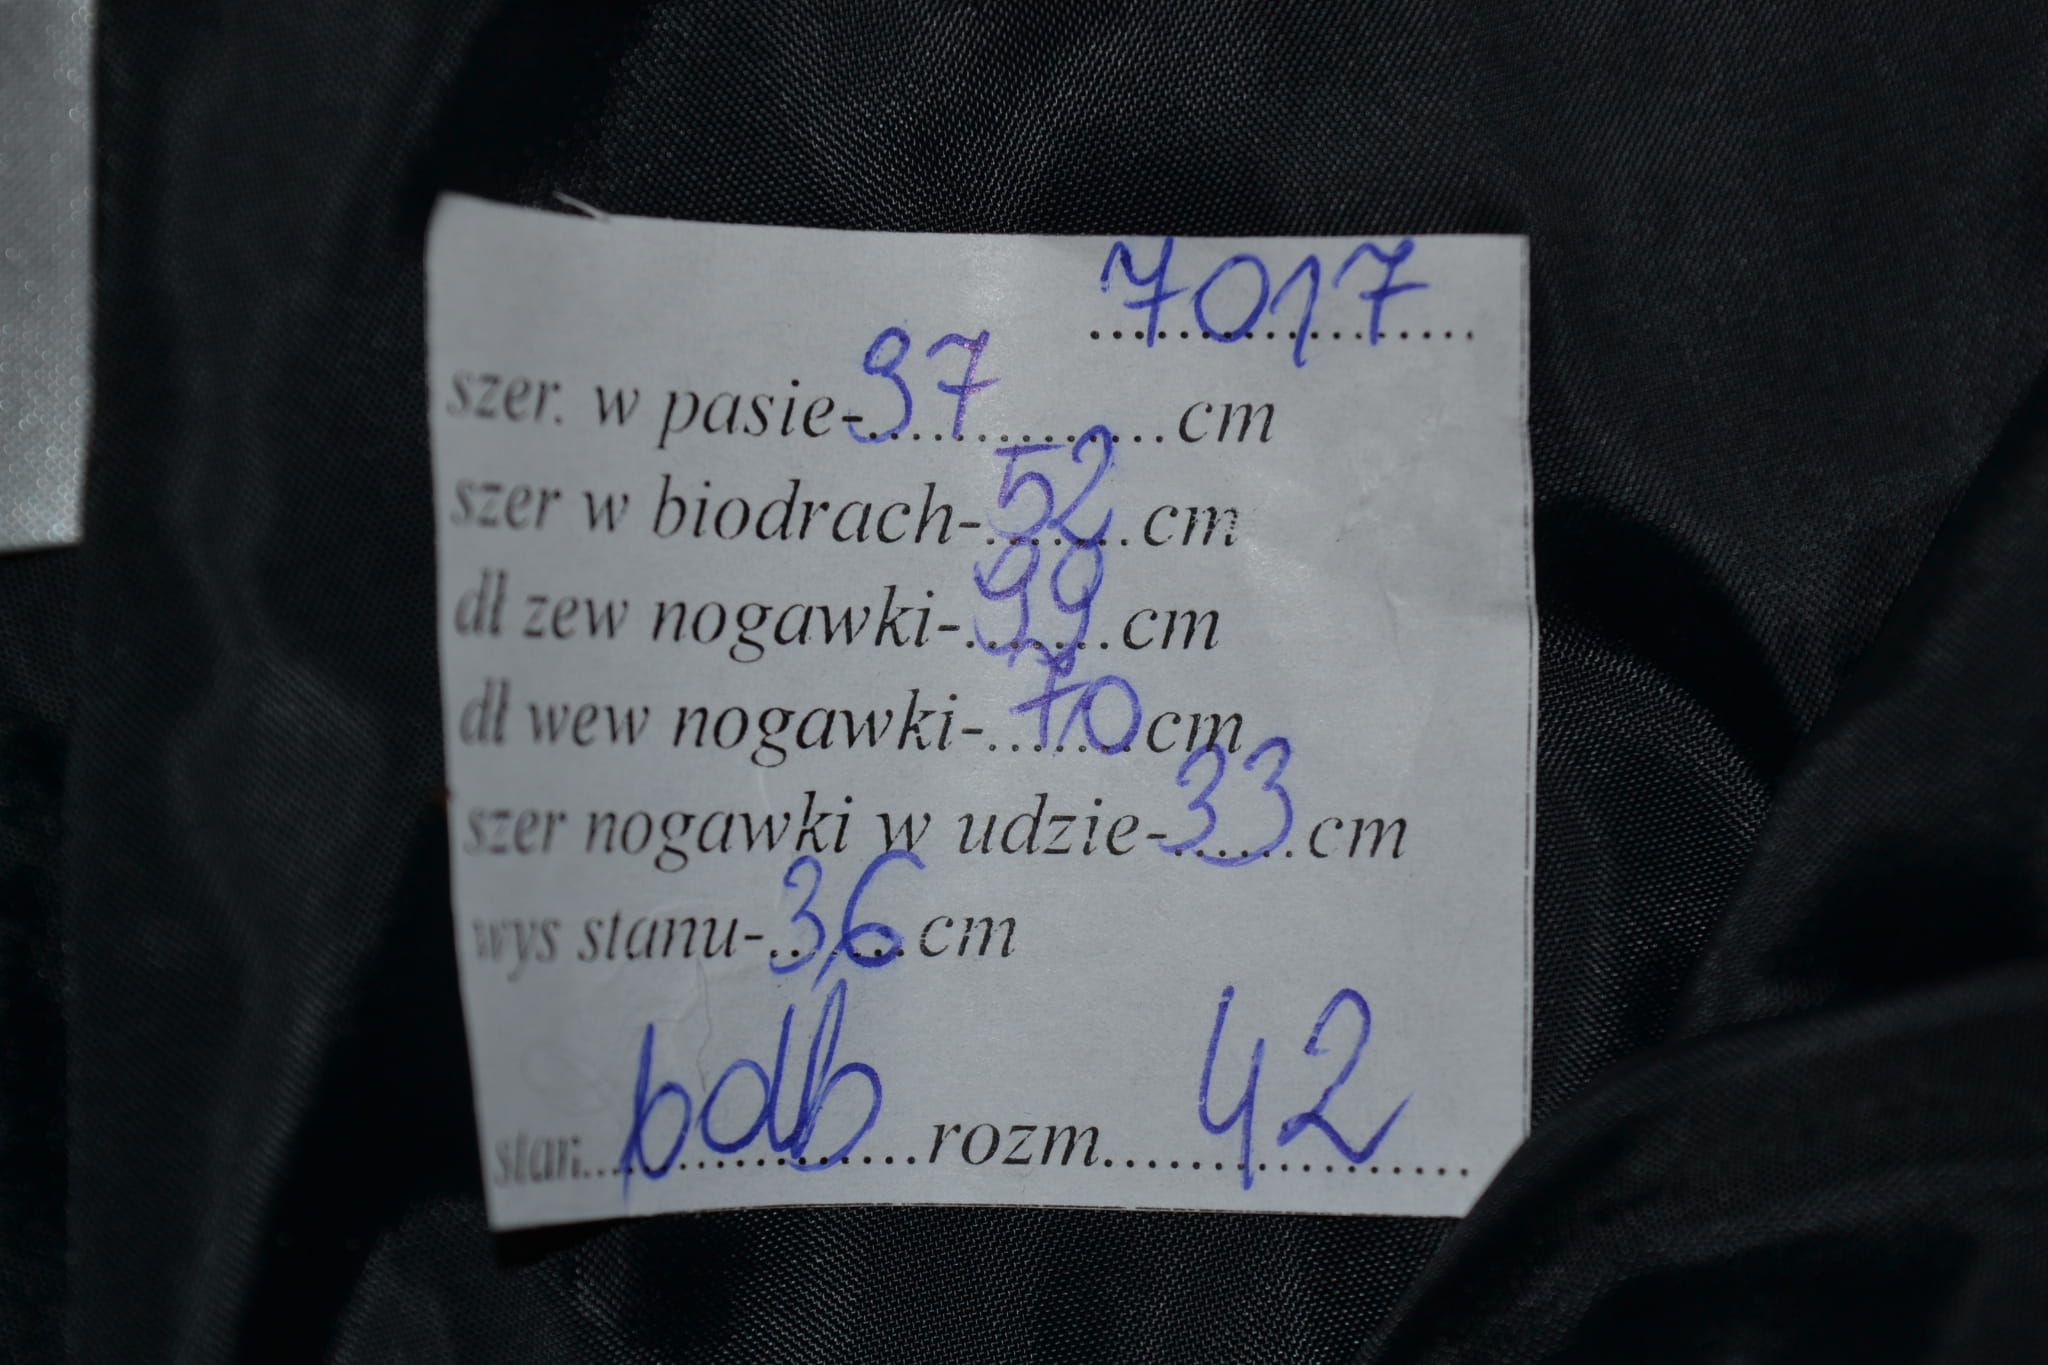 7017
szer. w pasie-97cm
szer w biodrach-52cm
dł zew nogawki-99cm
dł wew nogawki-70cm
szer nogawki w udzie-33cm
wys stanu-36cm
stan bdb rozm 42